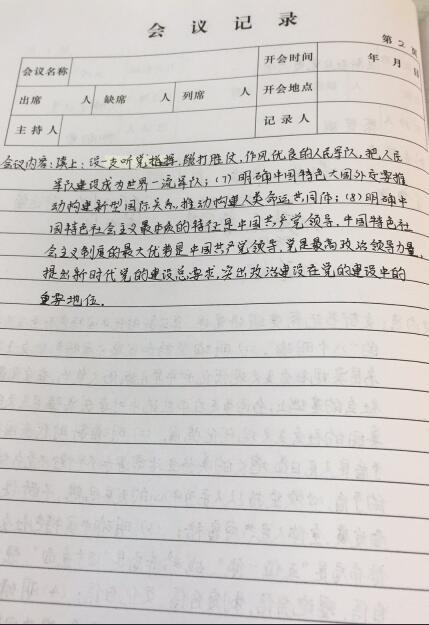 会议记录
第 2 页
会议名称
开会时间
年 月 日
出席 人 缺席 人 列席 人
开会地点
主持人
记录人
会议内容:续上:设一支听党指挥、能打胜仗、作风优良的人民军队,把人民
军队建设成为世界一流军队;(7)明确中国特色大国外交要推
动构建新型国际关系,推动构建人类命运共同体;(8)明确中
国特色社会主义最本质的特征是中国共产党领导,中国特色社
会主义制度的最大优势是中国共产党领导,党是最高政治领导力量,
提出新时代党的建设总要求,突出政治建设在党的建设中的
重要地位。